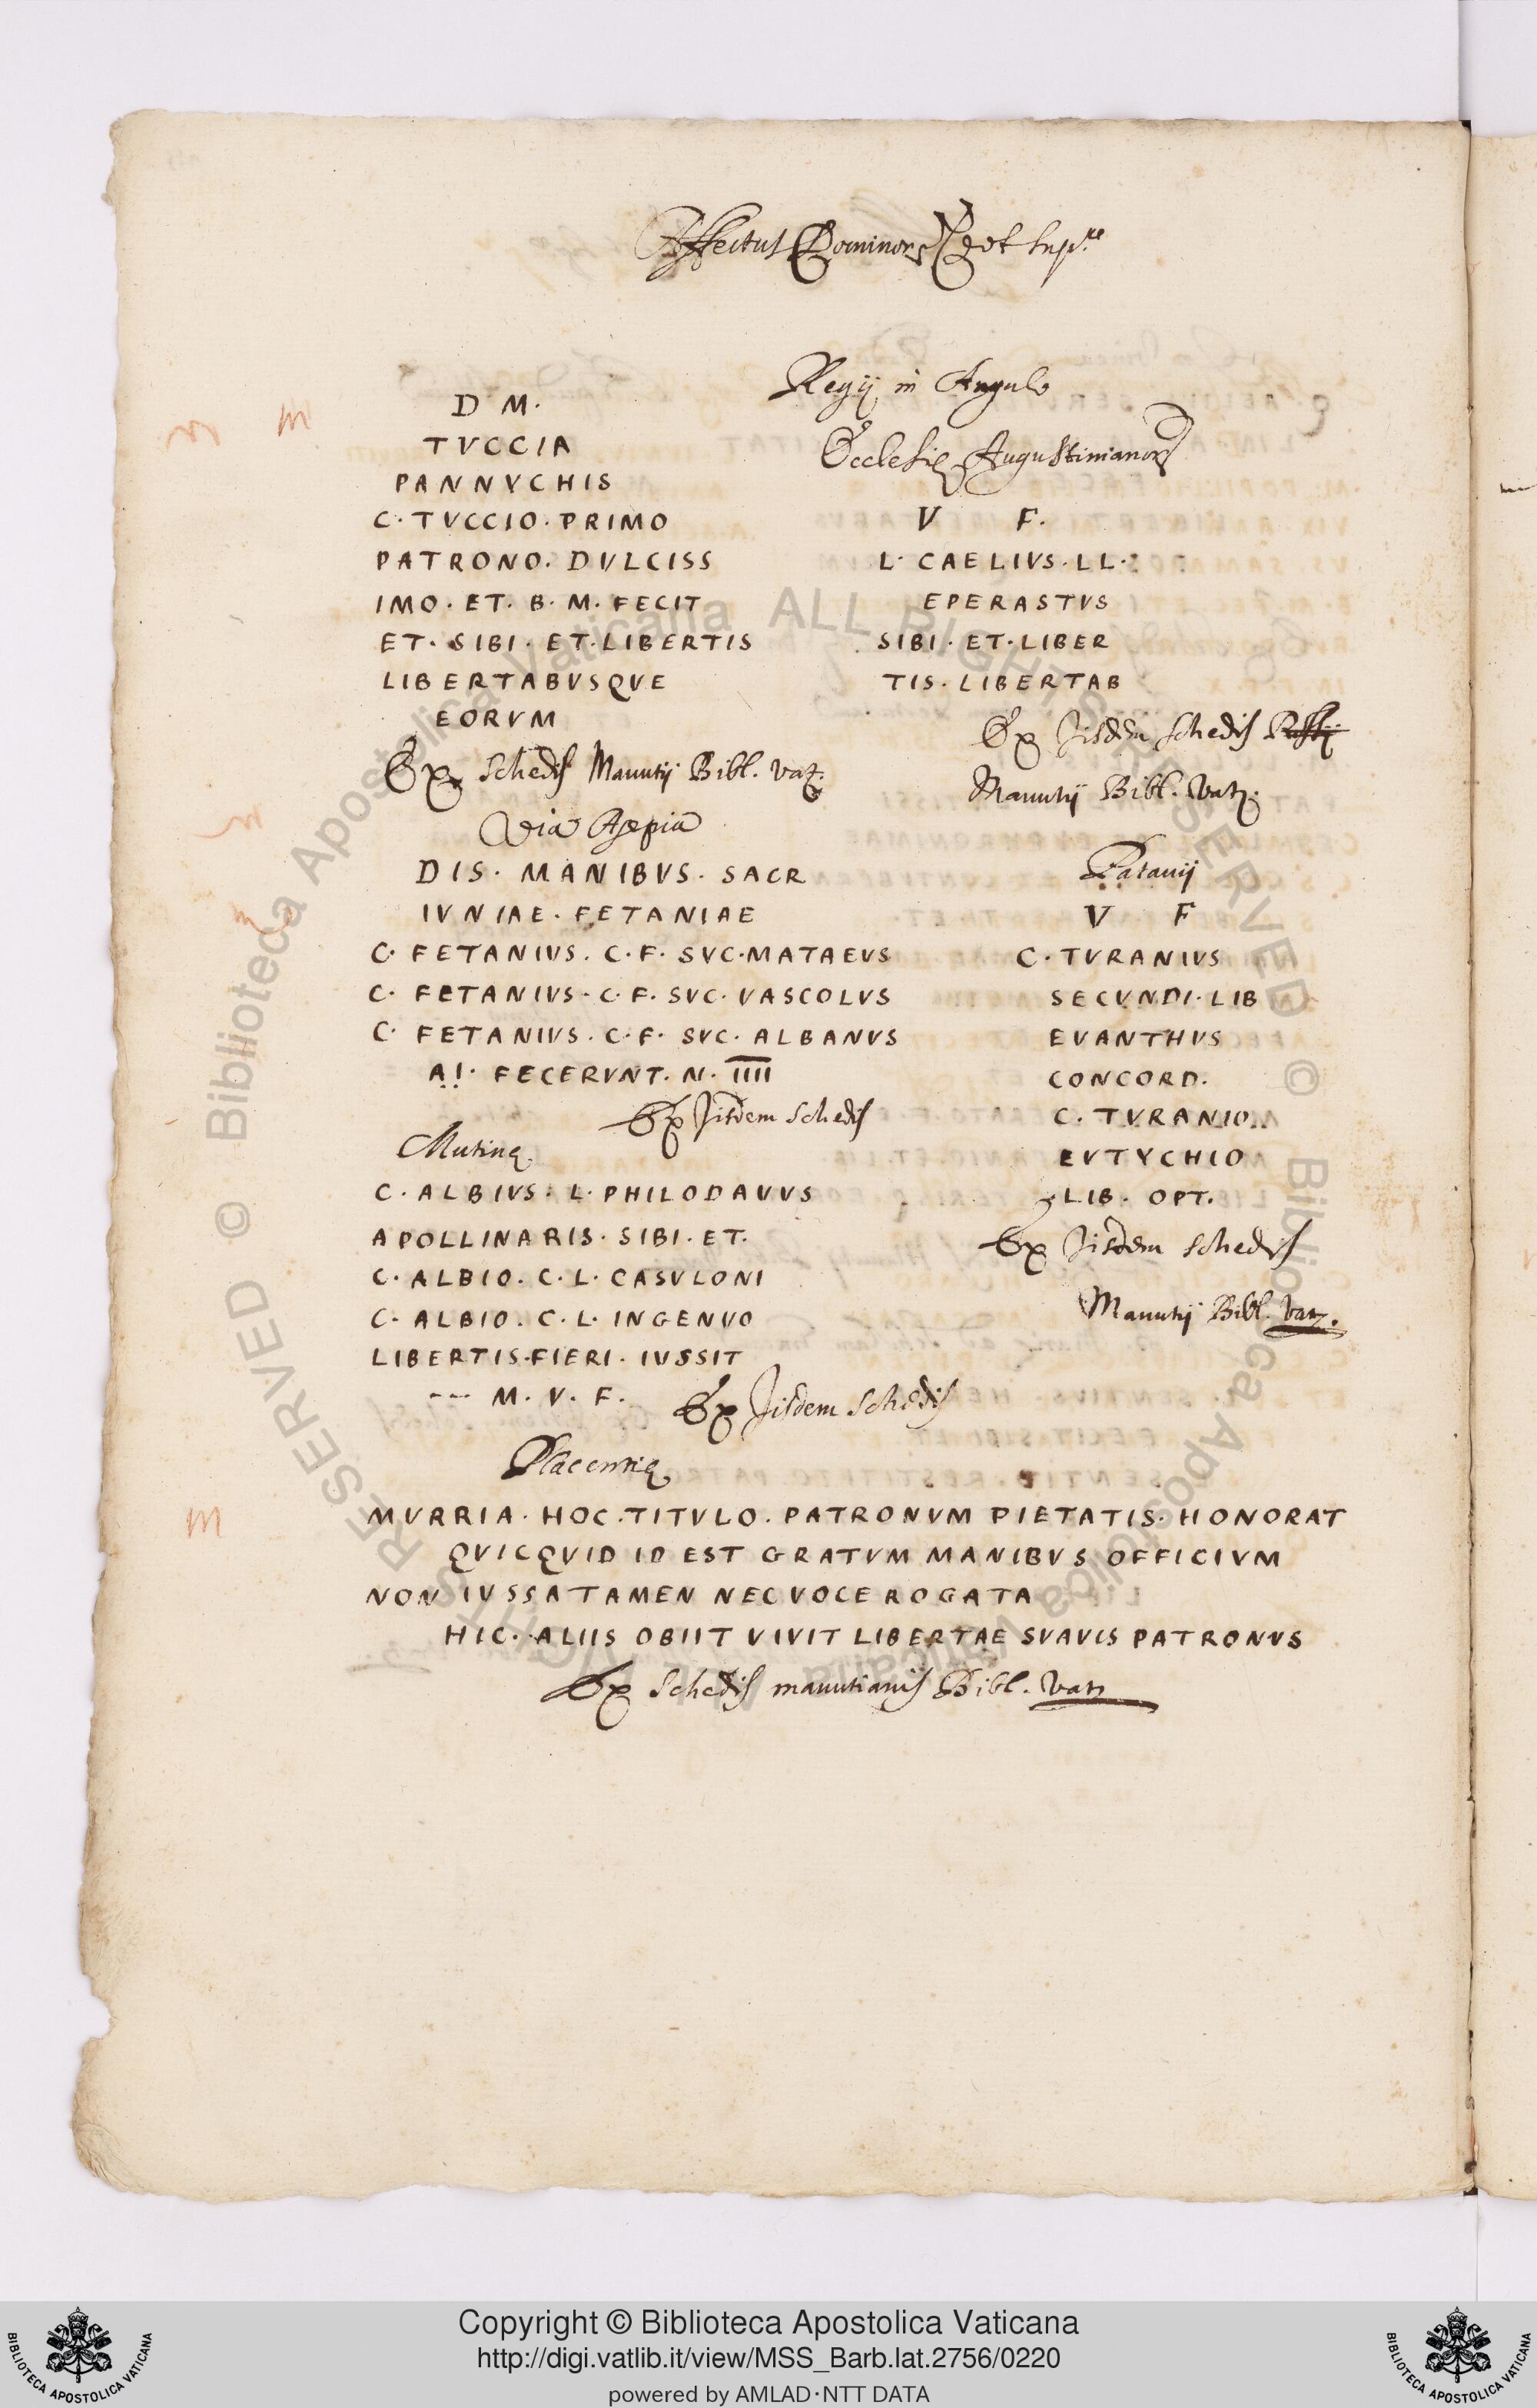 Affectus Dominor
D M.
TVCCIA
PANNYCHIS
C. TVCCIO. PRIMO
PATRONO. DVLCISS
IMO. ET. B. M. FECIT
ET. SIBI. ET. LIBERTIS
LIBERTABVSQVE
EORVM
Ex schedis Manutij Bibl. Vat.
Via Appia
DIS. MANIBVS. SACR
IVNIAE. FETANIAE
C. FETANIVS. C. F. SVC. MATAEVS
C. FETANIVS. C. F. SVC. VASCOLVS
C. FETANIVS. C. F. SVC. ALBANVS
A!. FECERVNT. N. IIII
Ex Jisdem schedis
Mutinę
C. ALBIVS. L. PHILODAVVS
APOLLINARIS. SIBI. ET.
C. ALBIO. C. L. CASVLONI
C. ALBIO. C. L. INGENVO
LIBERTIS. FIERI. IVSSIT
--- M. V. F.
Ex Jisdem Schedis
Regij in Angulo
Ecclesię Augustinianor
V F.
L. CAELIVS. LL.
EPERASTVS
SIBI. ET. LIBER
TIS. LIBERTAB
Ex Jisdem schedis
Manutij Bibl. Vat.
Patauij
V F
C. TVRANIVS
SECVNDI. LIB
EVANTHVS
CONCORD.
C. TVRANIO.
EVTYCHIO
LIB. OPT.
Ex Jisdem schedis
Manutij Bibl. Vat.
Placentię
MVRRIA. HOC. TITVLO. PATRONVM PIETATIS. HONORAT
QVICQVID ID EST GRATVM MANIBVS OFFICIVM
NON IVSSA TAMEN NEC VOCE ROGATA
HIC. ALIIS OBIIT VIVIT LIBERTAE SVAVIS PATRONVS
Ex Schedis manutianis Bibl. Vat
m
m
m
m
© Biblioteca Apostolica Vaticana ALL RIGHTS RESERVED © Biblioteca Apostolica Vaticana ALL RIGHTS RESERVED
Copyright © Biblioteca Apostolica Vaticana
http://digi.vatlib.it/view/MSS_Barb.lat.2756/0220
powered by AMLAD·NTT DATA
BIBLIOTECA APOSTOLICA VATICANA
BIBLIOTECA APOSTOLICA VATICANA